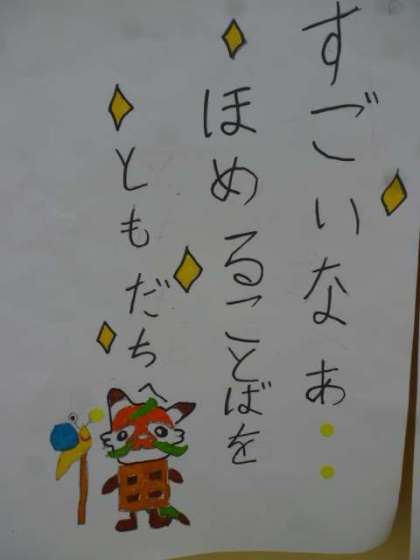 すごいなぁ‥
ほめることばを
ともだちへ